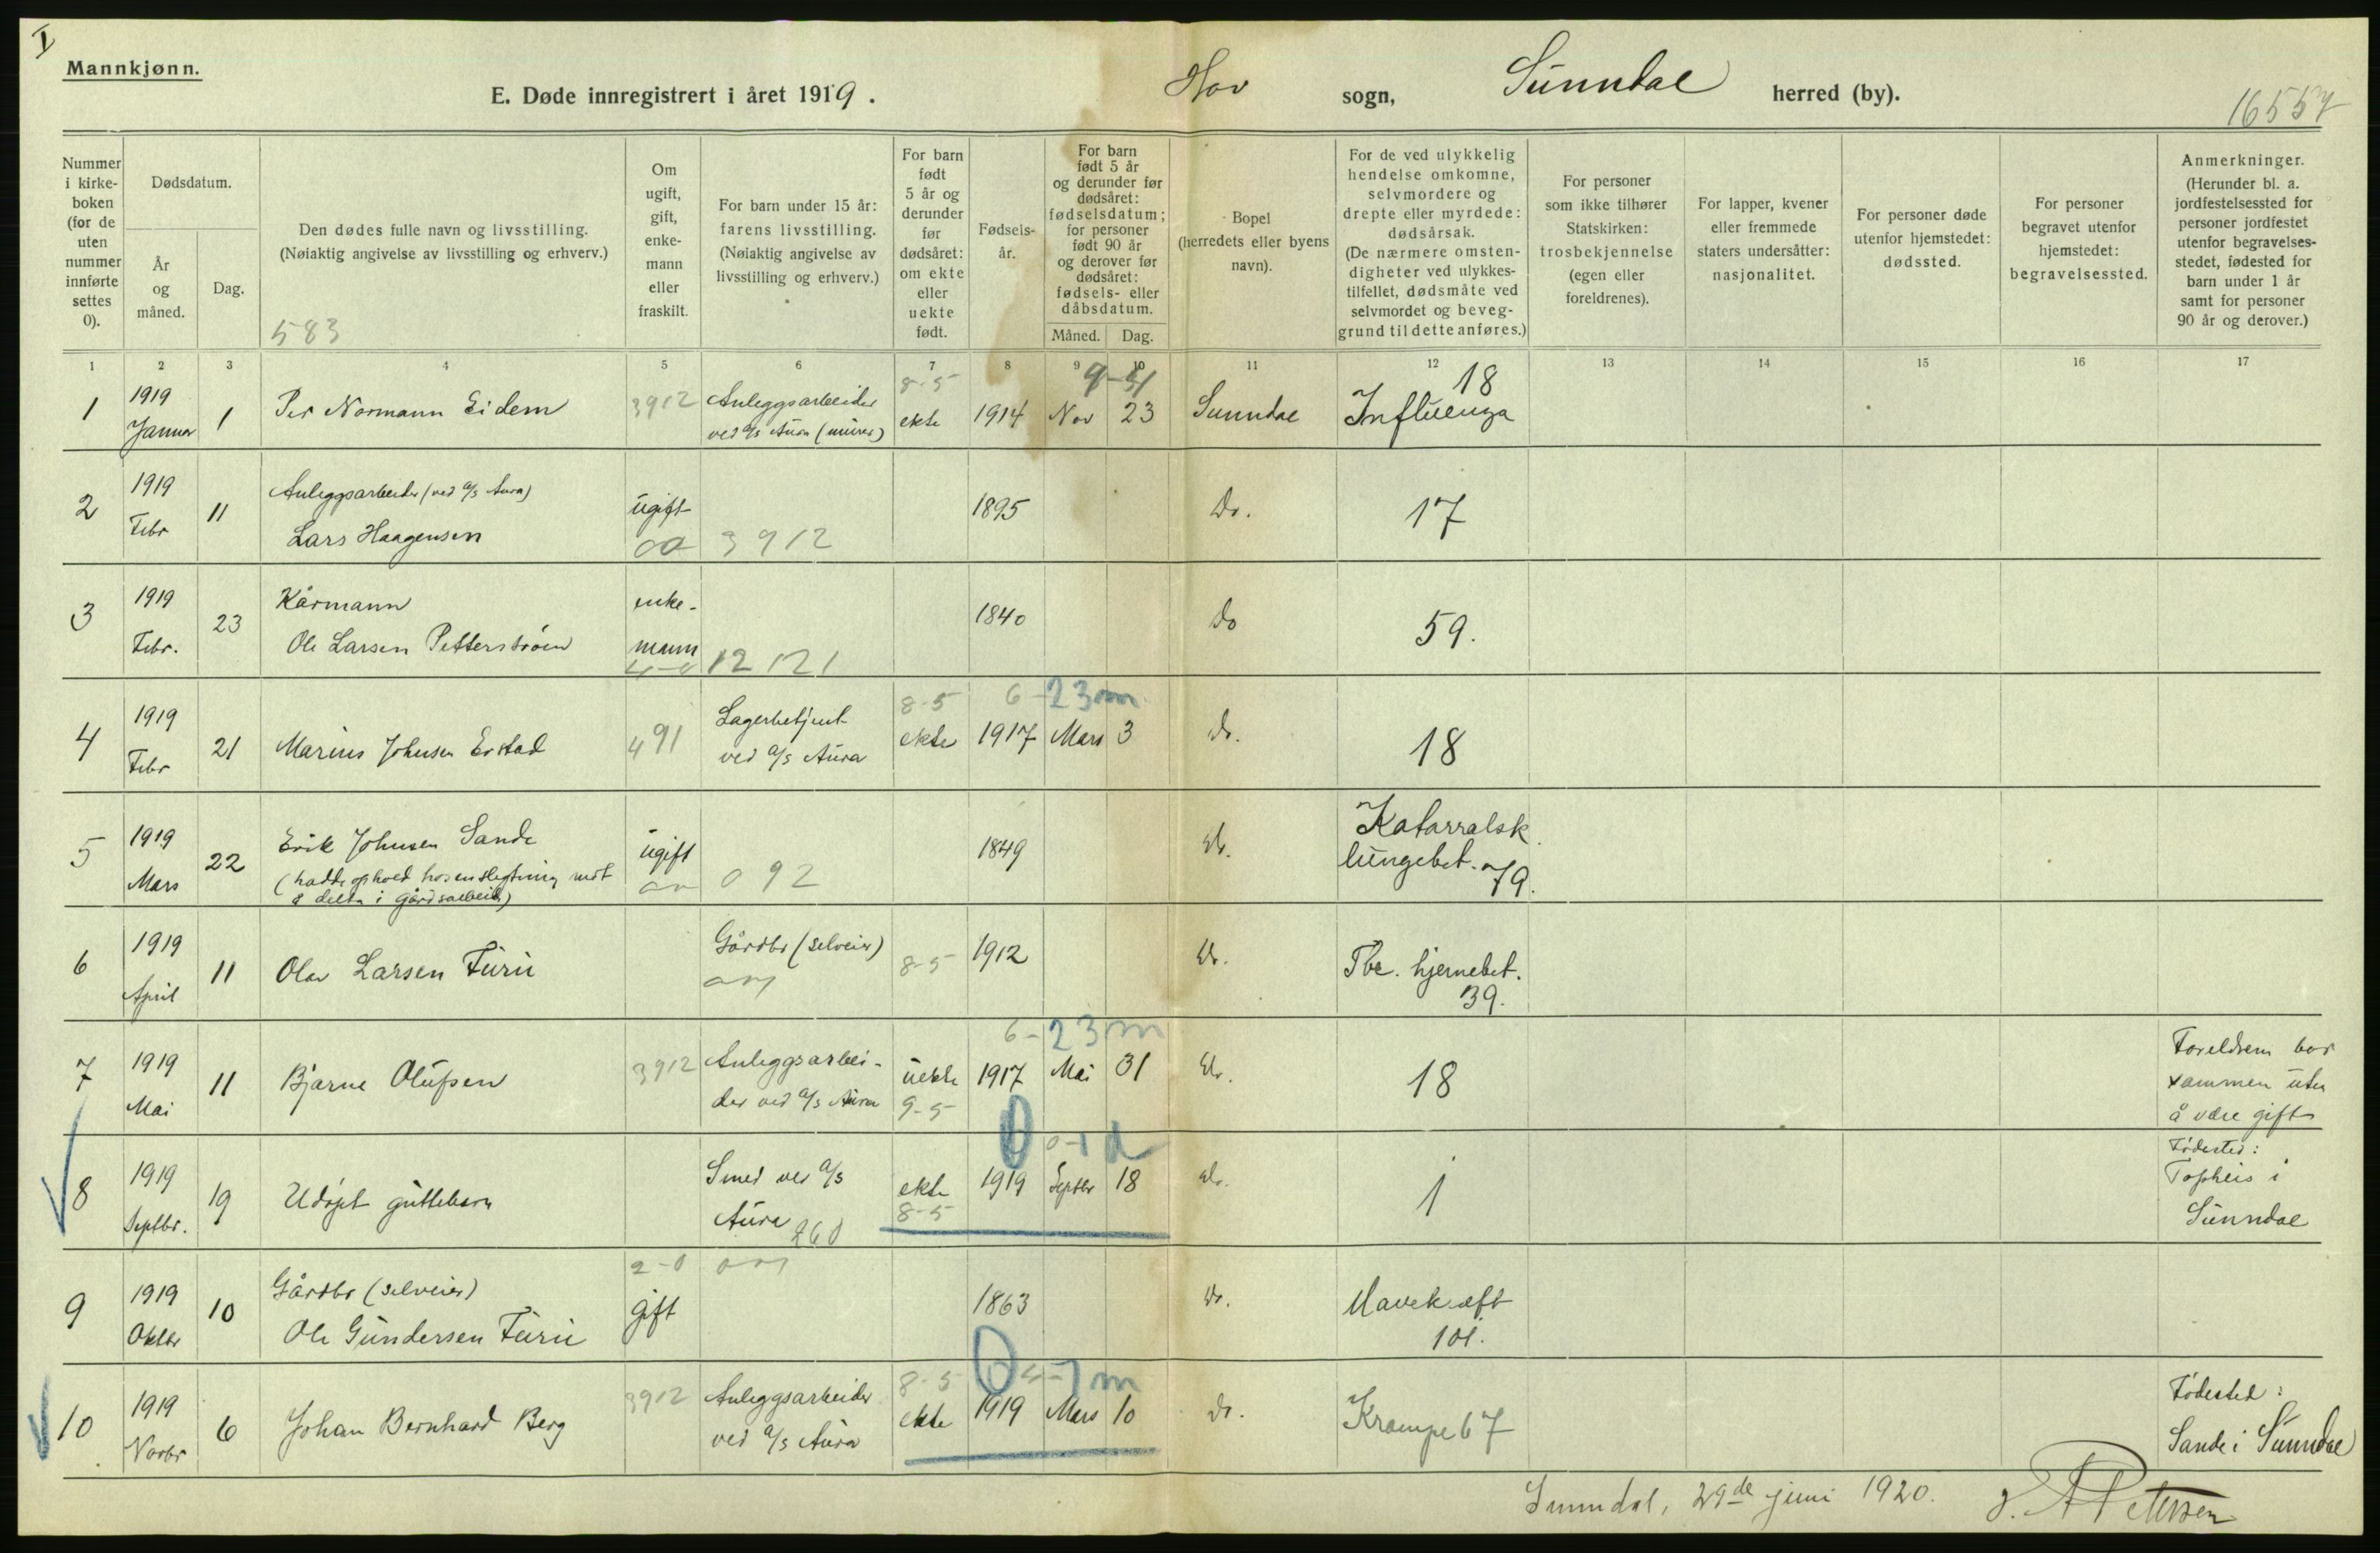 I
Mannkjønn.
E. Døde innregistrert i året 1919.
Hov sogn, Sunndal herred (by).
16557
Nummer i kirke-boken (for de uten nummer innførte settes 0).
Dødsdatum.
År og måned.
Dag.
Den dødes fulle navn og livsstilling.
(Nøiaktig angivelse av livsstilling og erhverv.)
583
Om ugift, gift, enke-mann eller fraskilt.
For barn under 15 år: farens livsstilling.
(Nøiaktig angivelse av livsstilling og erhverv.)
For barn født 5 år og derunder før dødsåret: om ekte eller uekte født.
Fødsels-år.
For barn født 5 år og derunder før dødsåret: fødselsdatum; for personer født 90 år og derover før dødsåret: fødsels- eller dåbsdatum.
Måned. Dag.
Bopel (herredets eller byens navn).
For de ved ulykkelig hendelse omkomne, selvmordere og drepte eller myrdede: dødsårsak.
(De nærmere omsten-digheter ved ulykkes-tilfellet, dødsmåte ved selvmordet og beveg-grund til dette anføres.)
For personer som ikke tilhører Statskirken: trosbekjennelse (egen eller foreldrenes).
For lapper, kvener eller fremmede staters undersåtter: nasjonalitet.
For personer døde utenfor hjemstedet: dødssted.
For personer begravet utenfor hjemstedet: begravelsessted.
Anmerkninger.
(Herunder bl. a. jordfestelsessted for personer jordfestet utenfor begravelses-stedet, fødested for barn under 1 år samt for personer 90 år og derover.)
1 2 3 4 5 6 7 8 9 10 11 12 13 14 15 16 17
8-5 18
1 1919 Januar 1 Per Normann Eidem 3912 Anleggsarbeider ved a/s Aura (murer) ekte 1914 Nov 23 Sunndal Influenza
2 1919 Febr 11 Anleggsarbeider (ved a/s Aura)
Lars Haagensen ugift 3912 1895 Do. 17
3 1919 Febr. 23 Kårmann
Ole Larsen Petterstrøen enke-mann 12 121 1840 Do 59.
8-5 6-23m
4 1919 Febr 21 Marius Johnsen Erstad 491 Lagerbetjent ved a/s Aura ekte 1917 Mars 3 Do. 18
5 1919 Mars 22 Erik Johnsen Sande
(hadde ophold hos en slegtning mot
å delta i gårdsarbeid) ugift 092 1849 Do. Katarralsk lungebet. 79.
6 1919 April 11 Olav Larsen Furu Gårdbr (selveier) 8-5 1912 Do. Tbc. hjernebet.
39.
6-23m
7 1919 Mai 11 Bjarne Olufsen 3912 Anleggsarbei-der ved a/s Aura uekte 9-5 1917 Mai 31 Do. 18 Foreldrene bor
sammen uten
å være gift
0-1d
8 1919 Septbr. 19 Udøpt guttebarn Smed ved a/s Aura ekte 8-5 1919 Septbr 18 Do. 1 Fødested:
i
Sunndal
2-0
9 1919 Oktbr 10 Gårdbr (selveier)
Ole Gundersen Furu gift 1863 Do. Mavekræft
101.
8-5
10 1919 Novbr 6 Johan Bernhard Berg 3912 Anleggsarbeider ved a/s Aura ekte 1919 Mars 10 Do. Krampe 67 Fødested:
Sande i Sunndal
Sunndal, 29de juni 1920. Petersen